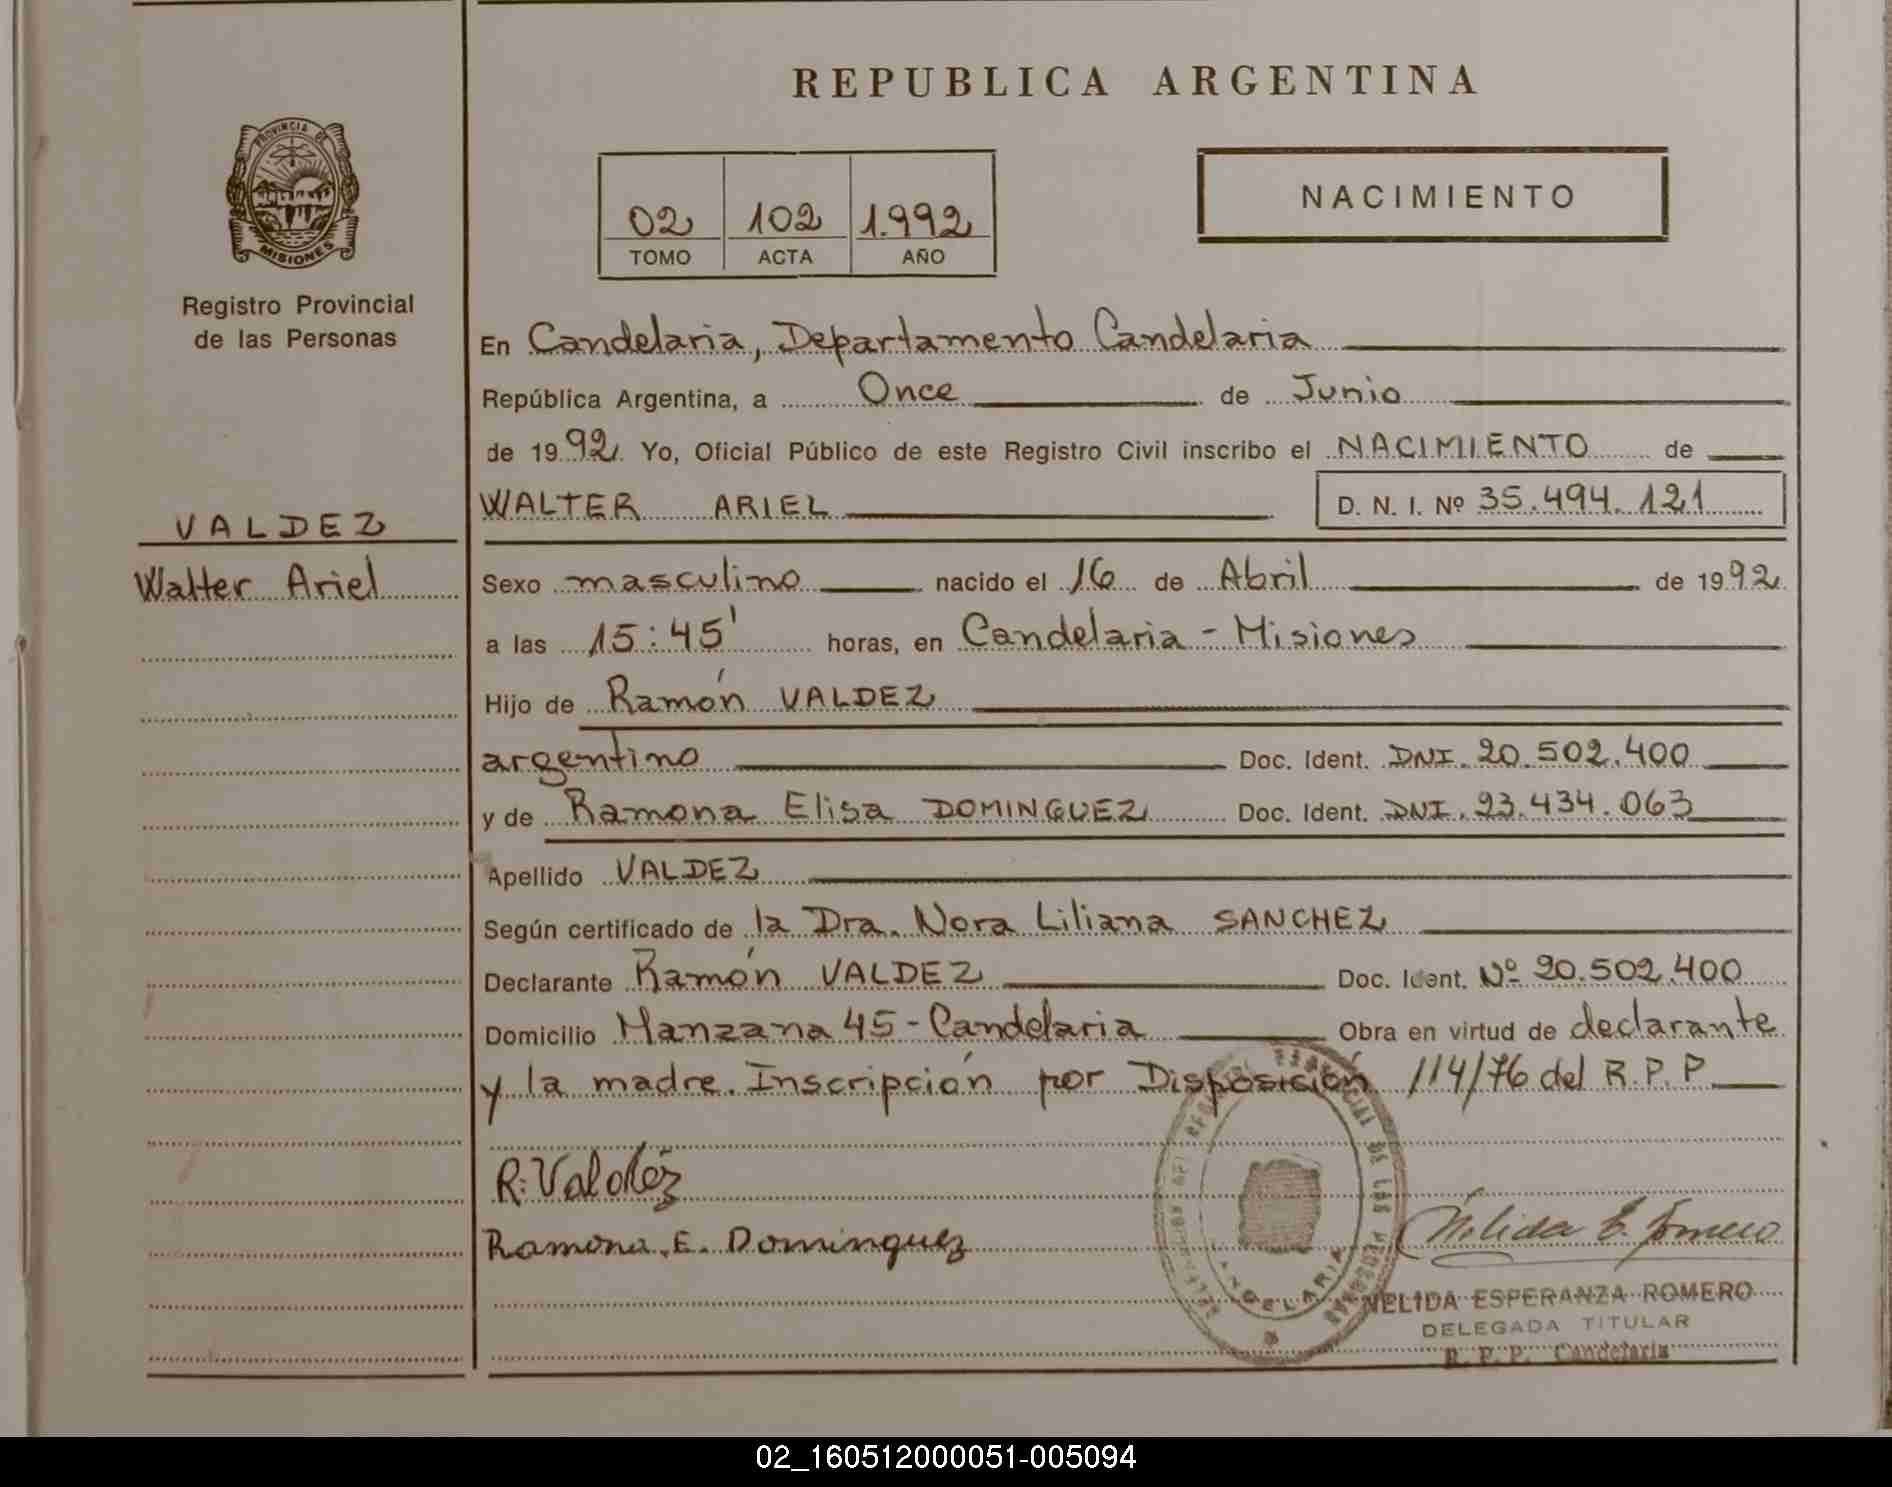 REPUBLICA ARGENTINA
PROVINCIA DE
MISIONES
Registro Provincial
de las Personas
02 102 1.992
TOMO ACTA AÑO
NACIMIENTO
En Candelaria, Departamento Candelaria
República Argentina, a Once de Junio
de 1992. Yo, Oficial Público de este Registro Civil inscribo el NACIMIENTO de
WALTER ARIEL D. N. I. Nº 35.494.121
VALDEZ
Walter Ariel
Sexo masculino nacido el 16 de Abril de 1992
a las 15:45' horas, en Candelaria - Misiones
Hijo de Ramón VALDEZ
argentino Doc. Ident. DNI. 20.502.400
y de Ramona Elisa DOMINGUEZ Doc. Ident. DNI. 23.434.063
Apellido VALDEZ
Según certificado de la Dra. Nora Liliana SANCHEZ
Declarante Ramón VALDEZ Doc. Ident. Nº 20.502.400
Domicilio Manzana 45 - Candelaria Obra en virtud de declarante
y la madre. Inscripción por Disposición 114/76 del R.P.P.
R. Valdéz
Ramona E. Dominguez
Nélida E. Romero
DE LAS PERSONAS
NELIDA ESPERANZA ROMERO
DELEGADA TITULAR
R. P. P. Candelaria
02_160512000051-005094